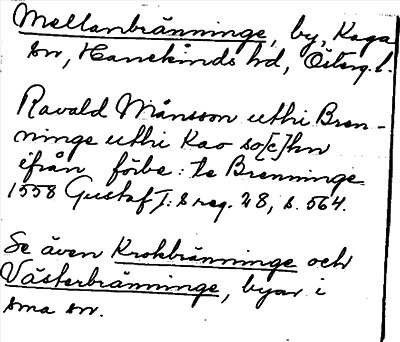 Mellanbränninge, by, Kaga
sn, Hanekinds hd, Östergl.
Ravald Månsson uthi Bren-
ninge uthi Kao so[c]hn
ifrån förbe: te Brenninge
1558 Gustaf I: s reg. 28, s. 564.
Se även Krokbränninge och
Västerbränninge, byar i
sma sn.